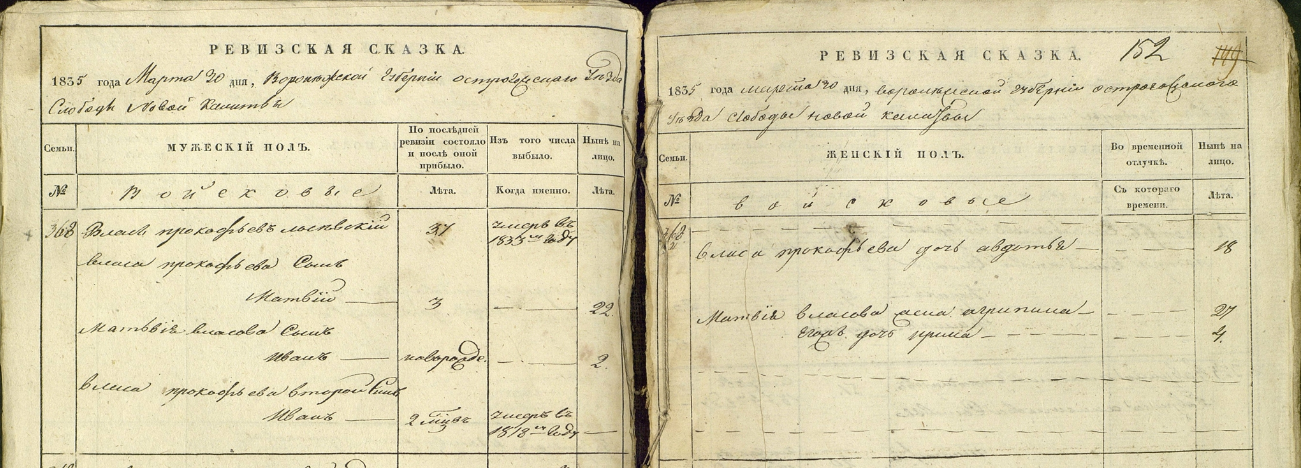 РЕВИЗСКАЯ СКАЗКА.
1835 года Марта 20 дня, Воронежской Губерніи острогожского уезда
Слободы Новой Калитвы
Семьи.
МУЖЕСКІЙ ПОЛЪ.
По последней ревизіи состояло и послѣ оной прибыло.
Изъ того числа выбыло.
Нынѣ на лицо.
№
Войсковые
Лѣта.
Когда именно.
Лѣта.
368 Власъ прокофьевъ 37 умеръ въ
1833мъ году
власа прокофьева Сынъ
Матвій 3 22
Матвѣя власова Сынъ
Иванъ новорожд. 2.
власа прокофьева второй Сынъ
Иванъ 2 умеръ въ
1818мъ году
РЕВИЗСКАЯ СКАЗКА. 152
1835 года марта 20 дня, воронежской губерніи острогожского
уезда слободы новой калитвы
Семьи.
ЖЕНСКІЙ ПОЛЪ.
Во временной отлучкѣ.
Нынѣ на лицо.
№
войсковые
Съ котораго времени.
Лѣта.
368
власа прокофьева дочь авдотья 18
Матвѣя власова жена агрипина 27
Егожъ дочь ирина 4.